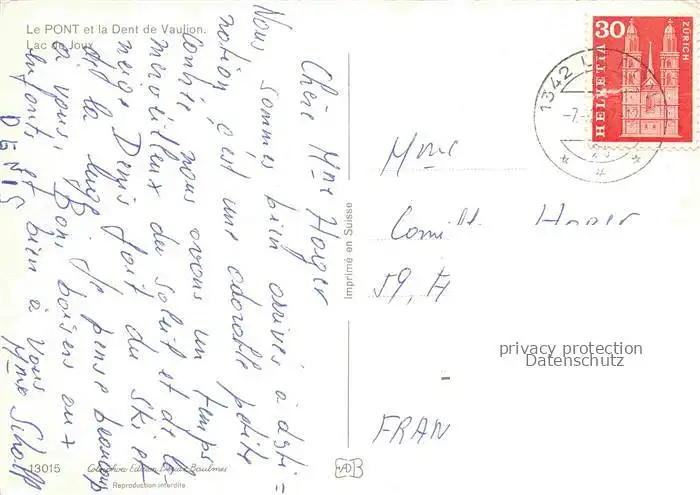 Le PONT et la Dent de Vaulion.
Lac de Joux
Chère Mme Hager
Nous sommes bien arrivés à desti=
nation, c'est une adorable petite
Combe, nous avons un temps
merveilleux du soleil et de la
neige Denis fait du ski et
de la luge. Je pense beaucoup
à vous, Bons baisers aux
enfants et bien à Vous
Mme
DENIS
13015
Reproduction interdite
Imprimé en Suisse
30
HELVETIA
ZÜRICH
1342
Mme
59,
FRAN
privacy protection
Datenschutz